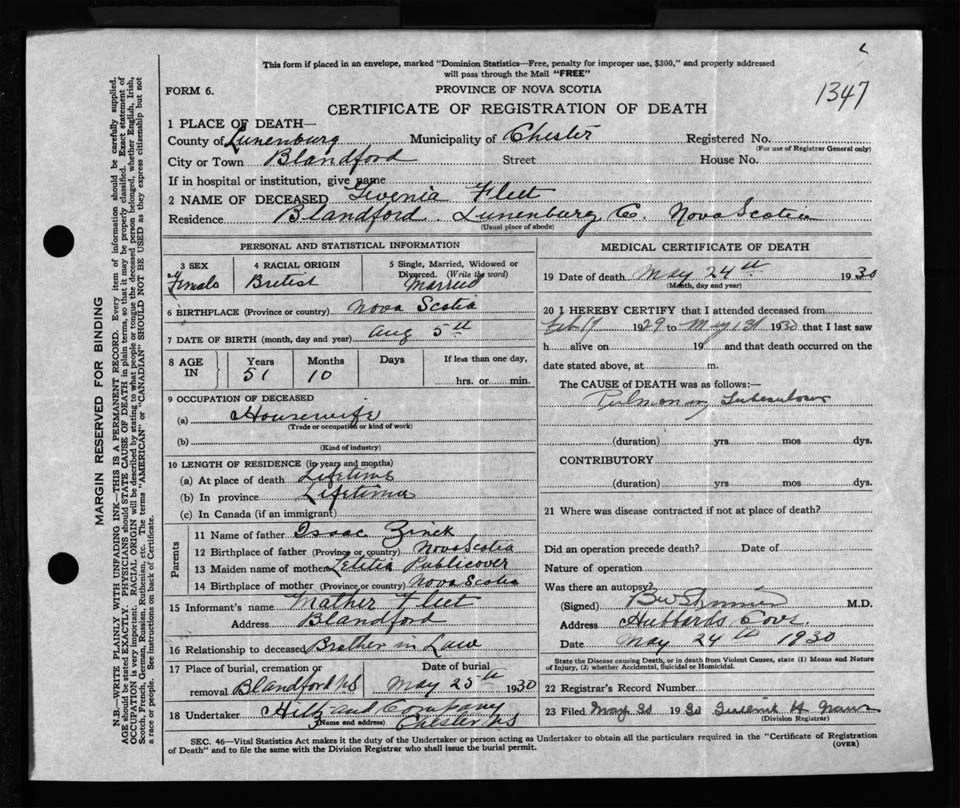 This form if placed in an envelope, marked "Dominion Statistics—Free, penalty for improper use, $300," and properly addressed
will pass through the Mail "FREE"
1347
FORM 6.
PROVINCE OF NOVA SCOTIA
CERTIFICATE OF REGISTRATION OF DEATH
1 PLACE OF DEATH—
County of Lunenburg Municipality of Chester Registered No.
(For use of Registrar General only)
City or Town Blandford Street House No.
If in hospital or institution, give name
2 NAME OF DECEASED Fleet
Residence Blandford. Lunenburg Co. Nova Scotia
(Usual place of abode)
PERSONAL AND STATISTICAL INFORMATION
3 SEX
Female
4 RACIAL ORIGIN
British
5 Single, Married, Widowed or
Divorced. (Write the word)
Married
6 BIRTHPLACE (Province or country) Nova Scotia
7 DATE OF BIRTH (month, day and year) Aug 5th
8 AGE IN
Years Months Days If less than one day,
51 10 hrs. or min.
9 OCCUPATION OF DECEASED
(a) Housewife
(Trade or occupation or kind of work)
(b)
(Kind of industry)
10 LENGTH OF RESIDENCE (in years and months)
(a) At place of death Lifetime
(b) In province Lifetime
(c) In Canada (if an immigrant)
Parents
11 Name of father Isaac Zinck
12 Birthplace of father (Province or country) Nova Scotia
13 Maiden name of mother Letitia Publicover
14 Birthplace of mother (Province or country) Nova Scotia
15 Informant's name Mather Fleet
Address Blandford
16 Relationship to deceased Brother in Law
17 Place of burial, cremation or removal Blandford NS
Date of burial May 25th 1930
18 Undertaker Hiltz and Company
(Name and address) Chester NS
MEDICAL CERTIFICATE OF DEATH
19 Date of death May 24th 1930
(Month, day and year)
20 I HEREBY CERTIFY that I attended deceased from
Feb 17 1929 to May 1930 that I last saw
h alive on 19 and that death occurred on the
date stated above, at m.
The CAUSE of DEATH was as follows:—
Pulmonary Tuberculosis
(duration) yrs mos dys.
CONTRIBUTORY
(duration) yrs mos dys.
21 Where was disease contracted if not at place of death?
Did an operation precede death? Date of
Nature of operation
Was there an autopsy?
(Signed) M.D.
Address Hubbards Cove
Date May 24th 1930
State the Disease causing Death, or in death from Violent Causes, state (1) Means and Nature
of Injury, (2) whether Accidental, Suicidal or Homicidal.
22 Registrar's Record Number
23 Filed May 30 1930
(Division Registrar)
SEC. 46—Vital Statistics Act makes it the duty of the Undertaker or person acting as Undertaker to obtain all the particulars required in the "Certificate of Registration
of Death" and to file the same with the Division Registrar who shall issue the burial permit.
(OVER)
MARGIN RESERVED FOR BINDING
N.B.—WRITE PLAINLY WITH UNFADING INK—THIS IS A PERMANENT RECORD. Every item of information should be carefully supplied.
AGE should be stated EXACTLY. PHYSICIANS should STATE CAUSE OF DEATH in plain terms, so that it may be properly classified. Exact statement of
OCCUPATION is very important. RACIAL ORIGIN will be described by stating to what people or tongue the deceased person belonged, whether English, Irish,
Scotch, French, German, Russian, Ruthenian, etc. The terms "AMERICAN" or "CANADIAN" SHOULD NOT BE USED as they express citizenship but not
a race or people. See instructions on back of Certificate.